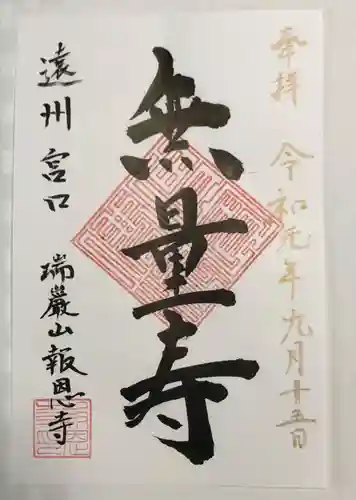 奉拝
令和元年九月十五日
無量寿
遠州宮口
瑞巌山報恩寺